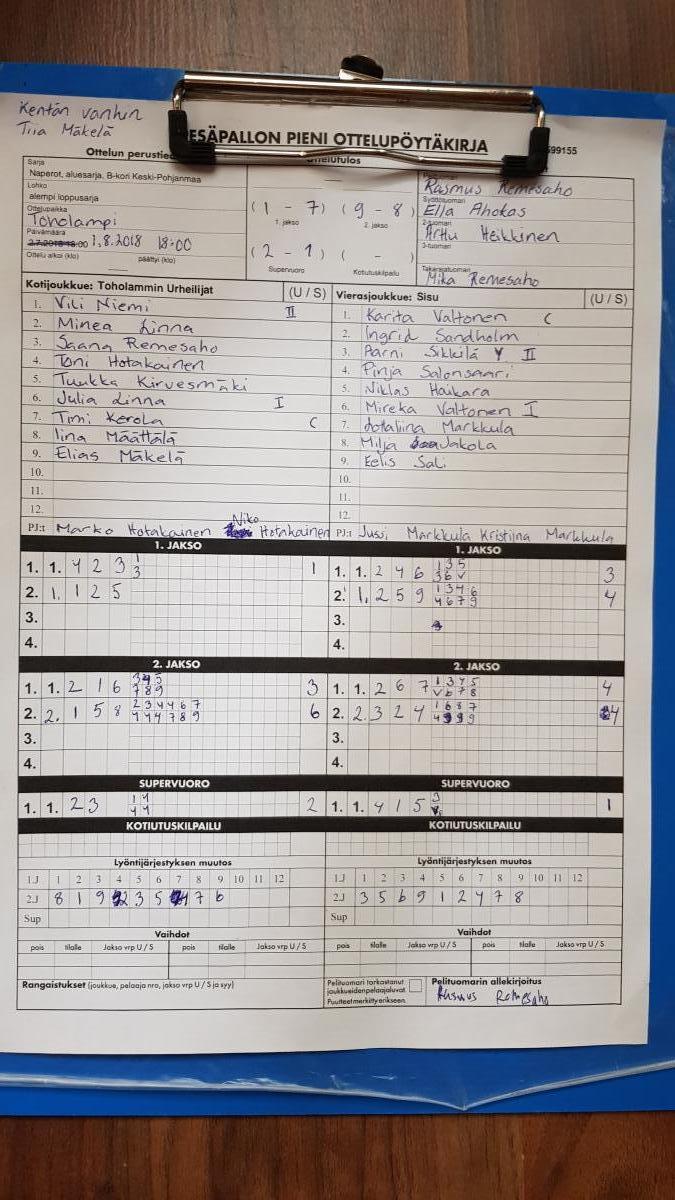 Kentän vanhin
Tiia Mäkelä
ESÄPALLON PIENI OTTELUPÖYTÄKIRJA
599155
Ottelun perustied
ottelutulos
Sarja
Naperot, aluesarja, B-kori Keski-Pohjanmaa
Lohko
alempi loppusarja
Ottelupaikka
Toholampi
Päivämäärä
2.7.2018 18:00 1.8.2018 18:00
Ottelu alkoi (klo) päättyi (klo)
( 1 - 7 ) ( 9 - 8 )
1. jakso 2. jakso
( 2 - 1 ) ( - )
Supervuoro Kotiutuskilpailu
Rasmus Remesaho
Syöttötuomari
Ella Ahokas
2-tuomari
Arttu Heikkinen
3-tuomari
Takarajatuomari
Mika Remesaho
Kotijoukkue: Toholammin Urheilijat (U / S)
1. Vili Niemi II
2. Minea Linna
3. Saana Remesaho
4. Toni Hotakainen
5. Tuukka Kirvesmäki
6. Julia Linna I
7. Timi Kerola C
8. Iina Määttälä
9. Elias Mäkelä
10.
11.
12.
PJ:t Marko Hotakainen Niko Hotakainen
Vierasjoukkue: Sisu (U / S)
1. Karita Valtonen C
2. Ingrid Sandholm
3. Aarni Sikkilä V II
4. Pinja Salonsaari
5. Niklas Haukara
6. Mireka Valtonen I
7. Lotaliina Markkula
8. Milja Jakola
9. Eelis Sali
10.
11.
12.
PJ:t Jussi Markkula Kristiina Markkula
1. JAKSO
1. 1. 4 2 3 1 1
3
2. 1. 1 2 5
3.
4.
1. JAKSO
1. 1. 2 4 6 1 3 5 3
3 6 V
2. 1. 2 5 9 1 3 4 6 4
4 6 7 9
3.
4.
2. JAKSO
1. 1. 2 1 6 3 4 5 3
7 8 9
2. 2. 1 5 8 2 3 4 4 6 7 6
4 4 4 7 8 9
3.
4.
2. JAKSO
1. 1. 2 6 7 1 3 4 5 4
V 6 7 8
2. 2. 3 2 4 1 6 8 7 4
4 9 9 9
3.
4.
SUPERVUORO
1. 1. 2 3 1 4 2
4 4
SUPERVUORO
1. 1. 4 1 5 3 1
KOTIUTUSKILPAILU
KOTIUTUSKILPAILU
Lyöntijärjestyksen muutos
1.J 1 2 3 4 5 6 7 8 9 10 11 12
2.J 8 1 9 2 3 5 4 7 6
Sup
Lyöntijärjestyksen muutos
1.J 1 2 3 4 5 6 7 8 9 10 11 12
2.J 3 5 6 9 1 2 4 7 8
Sup
Vaihdot
pois tilalle Jakso vrp U / S pois tilalle Jakso vrp U / S
Vaihdot
pois tilalle Jakso vrp U / S pois tilalle Jakso vrp U / S
Rangaistukset (joukkue, pelaaja nro, jakso vrp U / S ja syy)
Pelituomari tarkastanut
joukkueiden pelaajaluvat
Puutteet merkitty erikseen.
Pelituomarin allekirjoitus
Rasmus Remesaho